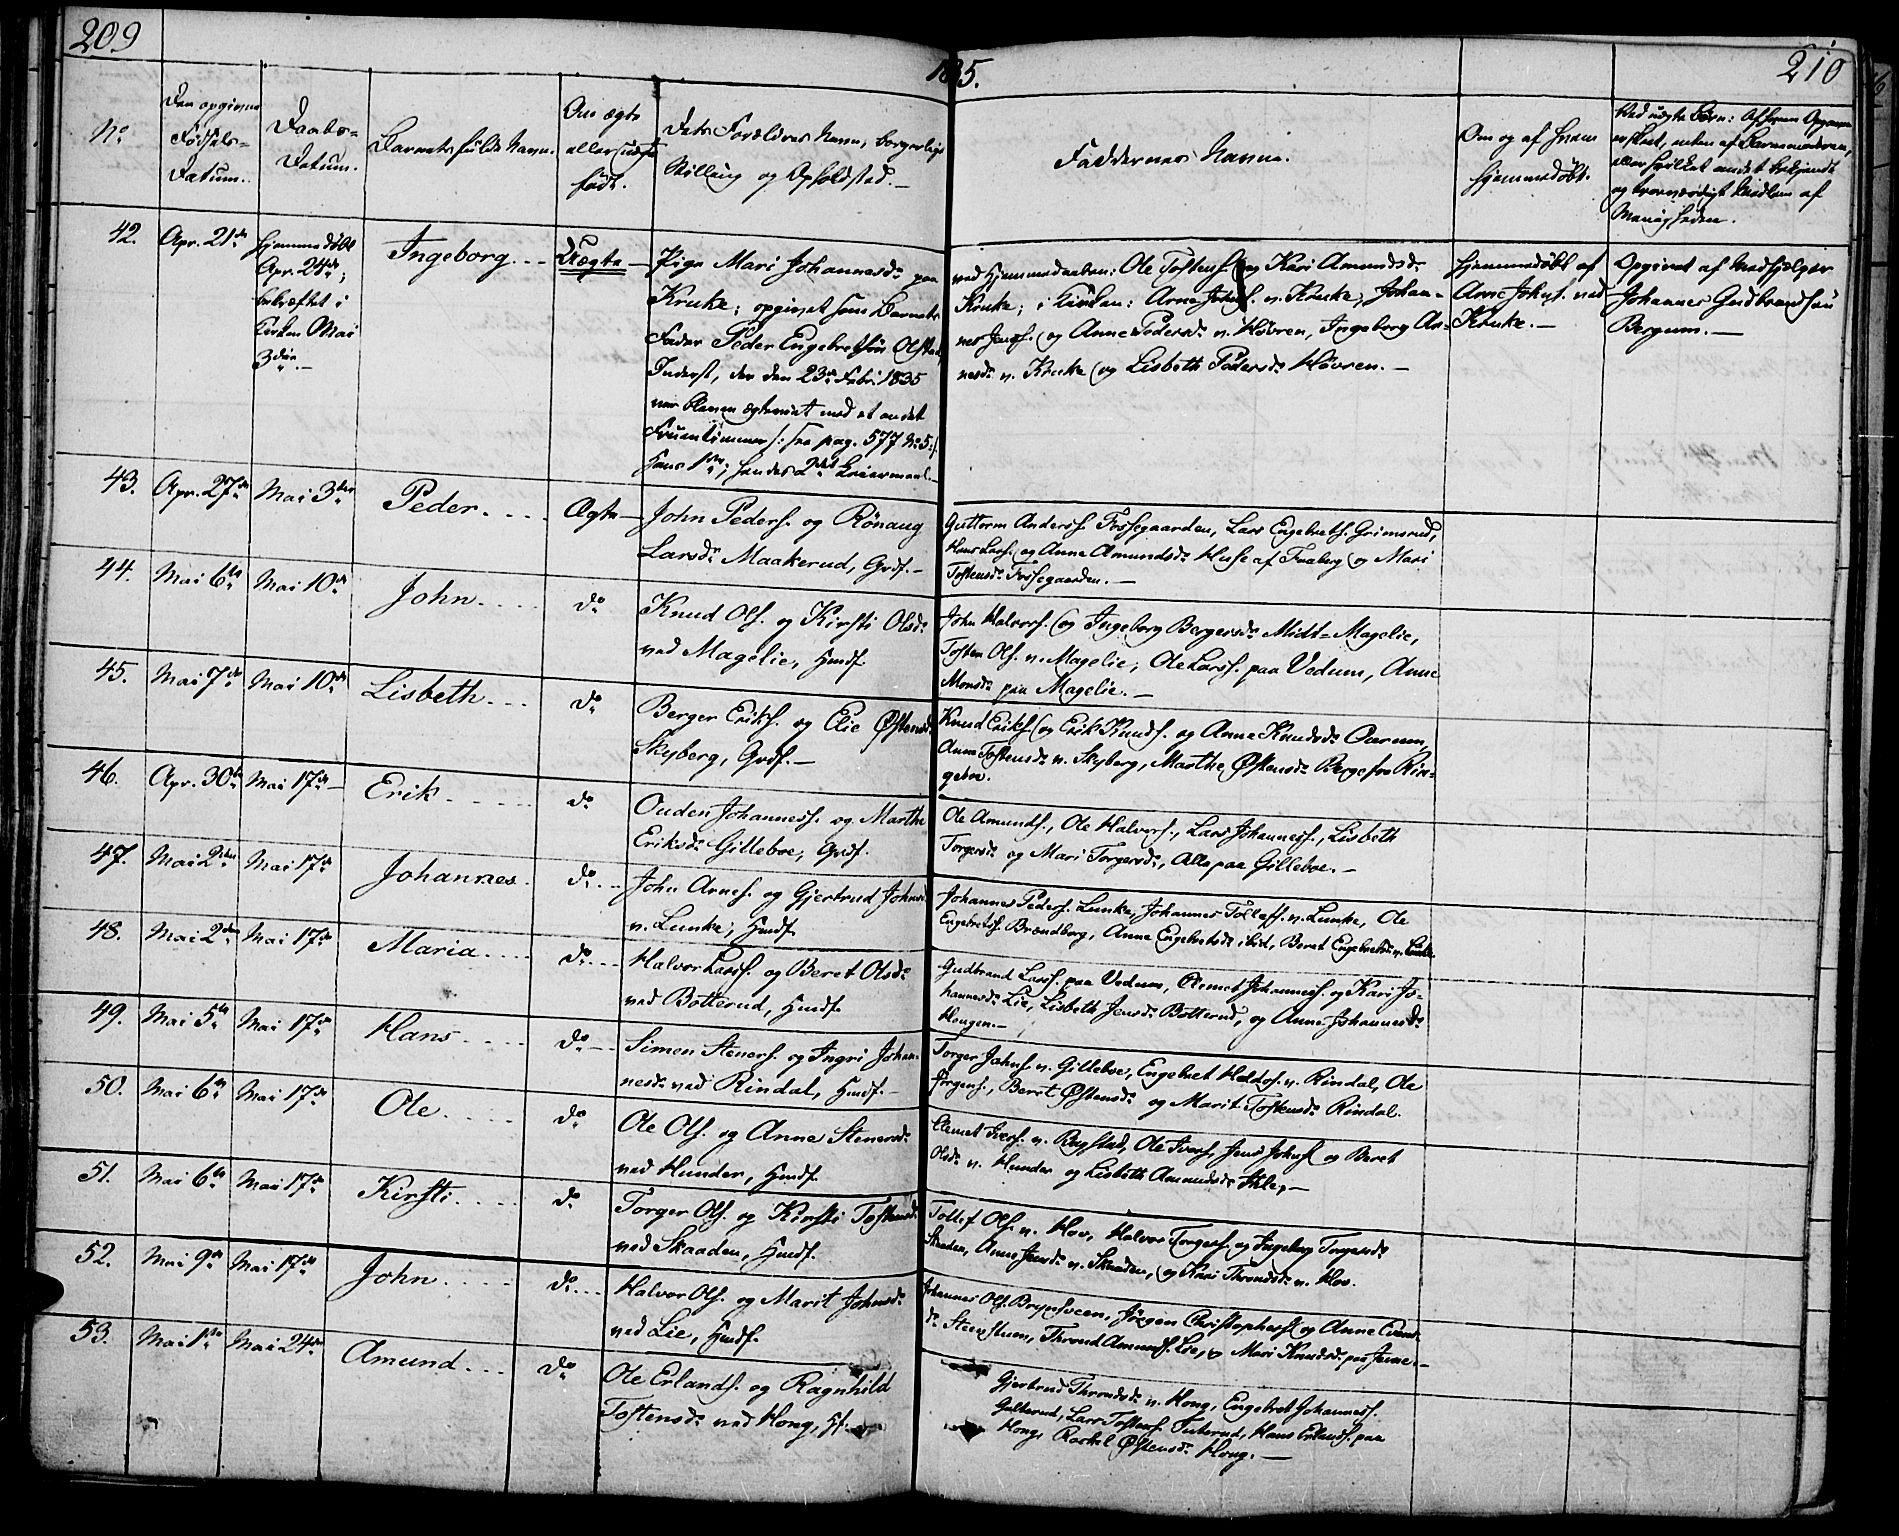 209
1835.
210
No
Den opgivne Fødsels-Datum.
Daabs-Datum.
Barnets fulde Navn.
Om ægte eller uægte født.
Dets Forældres Navn, borgerlige Stilling og Opholdsted.
Faddernes Navne.
Om og af hvem hjemmedøbt.
Ved uægte Børn: Af hvem Opgaven er skeet, enten af Barnemoderen, eller hvilket andet bekjendt og troværdigt Medlem af Menigheden.
42.
Apr. 21de
hjemmedøbt
Apr. 24de;
bekræftet i
Kirken Mai
3die.
Ingeborg
Uægte
Pige Mari Johannesdr paa
Kruke; opgivet som Barnets
Fader Peder Engebretsøn Olstad,
Inderst, der den 23de Febr. 1835
var bleven ægteviet med et andet
Fruentimmer /: see pag. 577 No 5:/
Hans 1ste; hendes 2det Leiermaal.
ved Hjemmedaaben: Ole Tostens. og Kari Amundsdr
Kruke; i Kirken: Arne Johns. v. Kruke, Johan-
nes Jens. og Anne Pedersdr v. Hovren, Ingeborg Ar-
nesdr v. Kruke og Lisbeth Pedersdr Hovren.
hjemmedøbt af
Arne Johns. ved
Kruke.
Opgivet af Medhjelper
Johannes Gudbrandsøn
Bergum.
43.
Apr. 27de
Mai 3die
Peder
Ægte
John Peders. og Rönaug
Larsdr Maakerud, Grdf.
Guttorm Anders. Fossegaarden, Lars Engebrets. Grimsrud,
Hans Lars. og Anne Amundsdr Huse af Faaberg og Mari
Tostensdr Fossegaarden.
44.
Mai 6te
Mai 10de
John
do
Knud Ols. og Kirsti Olsdr
ved Magelie, Hmdf.
John Halvors. og Ingeborg Bergersdr Midt-Magelie,
Tosten Ols. v. Magelie, Ole Lars. paa Vedum, Anne
Monsdr paa Magelie.
45.
Mai 7de
Mai 10de
Lisbeth
do
Berger Eriks. og Elie Østensdr
Skyberg, Grdf.
Knud Eriks. og Erik Knuds. og Anne Knudsdr Aarum,
Anne Tostensdr v. Skyberg, Marthe Østensdr Berge fra Rin-
geboe.
46.
Apr. 30te
Mai 17de
Erik
do
Ouden Johanness. og Marthe
Eriksdr Gilleboe, Grdf.
Ole Amunds., Ole Halvors., Lars Johanness., Lisbeth
Torgersdr og Mari Torgersdr, Alle paa Gilleboe.
47.
Mai 2den
Mai 17de
Johannes
do
John Arnes. og Gjertrud Johnsdr
v. Lunke, Hmdf.
Johannes Peders. Lunke, Johannes Tollefs. v. Lunke, Ole
Engebrets. Brændborg, Anne Engebretsdr ibid, Beret Engebretsdr v. Lunke.
48.
Mai 2den
Mai 17de
Maria
do
Halvor Lars. og Beret Olsdr
ved Botterud, Hmdf.
Gudbrand Lars. paa Vedum, Clemet Johanness. og Kari Jo-
hannesdr Lie, Lisbeth Jensdr Botterud, og Anne Johannesdr
Haugen.
49.
Mai 5te
Mai 17de
Hans
do
Simen Steners. og Ingri Johan-
nesdr ved Rindal, Hmdf.
Torger Johns. v. Gilleboe, Engebret Halvors. v. Rindal, Ole
Jörgens., Beret Østensdr og Marit Tostensdr Rindal.
50.
Mai 6te
Mai 17de
Ole
do
Ole Ols. og Anne Stenersdr
ved Hunder, Hmdf.
Clemet Ivers. v. Rogstad, Ole Ivers., Jens Johns. og Beret
Olsdr v. Hunder og Lisbeth Amundsdr
51.
Mai 6te
Mai 17de
Kirsti
do
Torger Ols. og Kirsti Tostensdr
ved Skaaden, Hmdf.
Tollef Ols. v. Hov, Halvor Torgers. og Ingeborg Torgersdr
Skaaden, Anne Jensdr v. Skaaden, og Kari Throndsdr v. Hov.
52.
Mai 9de
Mai 17de
John
do
Halvor Ols. og Marit Johnsdr
ved Lie, Hmdf.
Johannes Ols. Brynsveen, Jörgen Christophers. og Anne
Steenslum, Thrond Amunds. Lie, og Mari Knudsdr paa
53.
Mai 1ste
Mai 24de
Amund
do
Ole Erlands. og Ragnhild
Tostensdr ved Hong, H
Gjertrud Throndsdr v. Hong, Engebret Johanness.
Golterud, Lars Tostens. Tuterud, Hans Erlands. paa
Hong, Rachel Østensdr Hong.